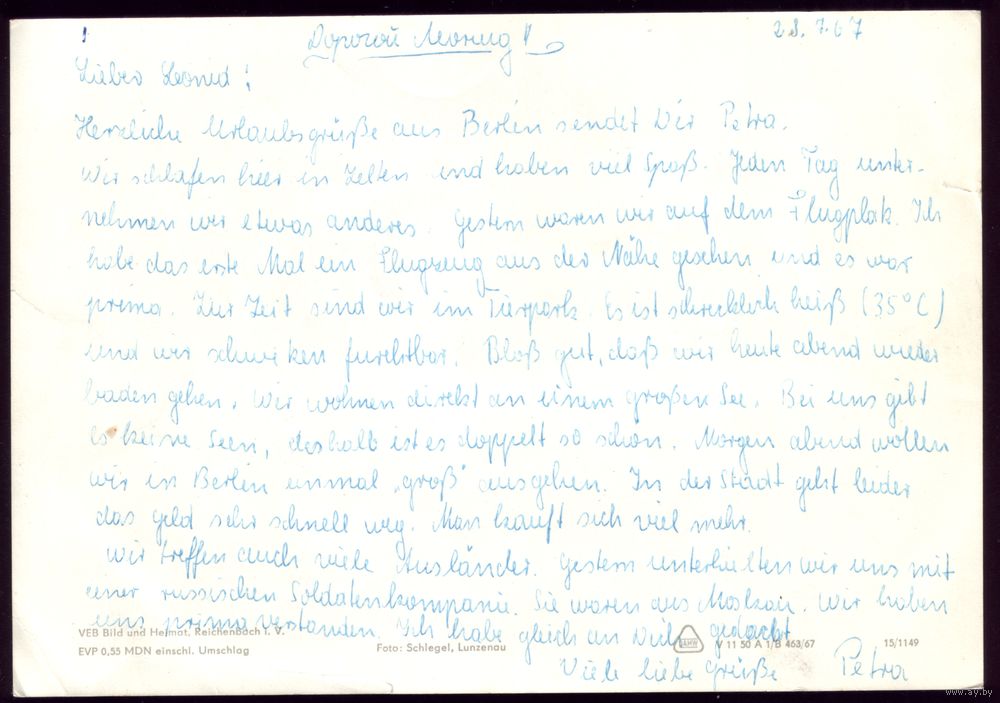 28.7.67
Дорогой Леонид!
Lieber Leonid!
Herzliche Urlaubsgrüße aus Berlin sendet Dir Petra.
Wir schlafen hier in Zelten und haben viel Spaß. Jeden Tag unter-
nehmen wir etwas anderes. Gestern waren wir auf dem Flugplak. Ich
habe das erste Mal ein Flugzeug aus der Nähe gesehen und es war
prima. Zur Zeit sind wir im Tierpark. Es ist schrecklich heiß (35°C)
und wir schwitzen furchtbar. Bloß gut, daß wir heute abend wieder
baden gehen. Wir wohnen direkt an einem großen See. Bei uns gibt
es keine Seen, deshalb ist es doppelt so schön. Morgen abend wollen
wir in Berlin einmal „groß" ausgehen. In der Stadt geht leider
das Geld sehr schnell weg. Man kauft sich viel mehr.
Wir treffen auch viele Ausländer. Gestern unterhielten wir uns mit
einer russischen Soldatenkompanie. Sie waren aus Moskau. Wir haben
uns prima verstanden. Ich habe gleich an Dich gedacht
Viele liebe Grüße Petra
VEB Bild und Heimat, Reichenbach i. V.
EVP 0,55 MDN einschl. Umschlag
Foto: Schlegel, Lunzenau
V 11 50 A 1/B 463/67
15/1149
www.ay.by